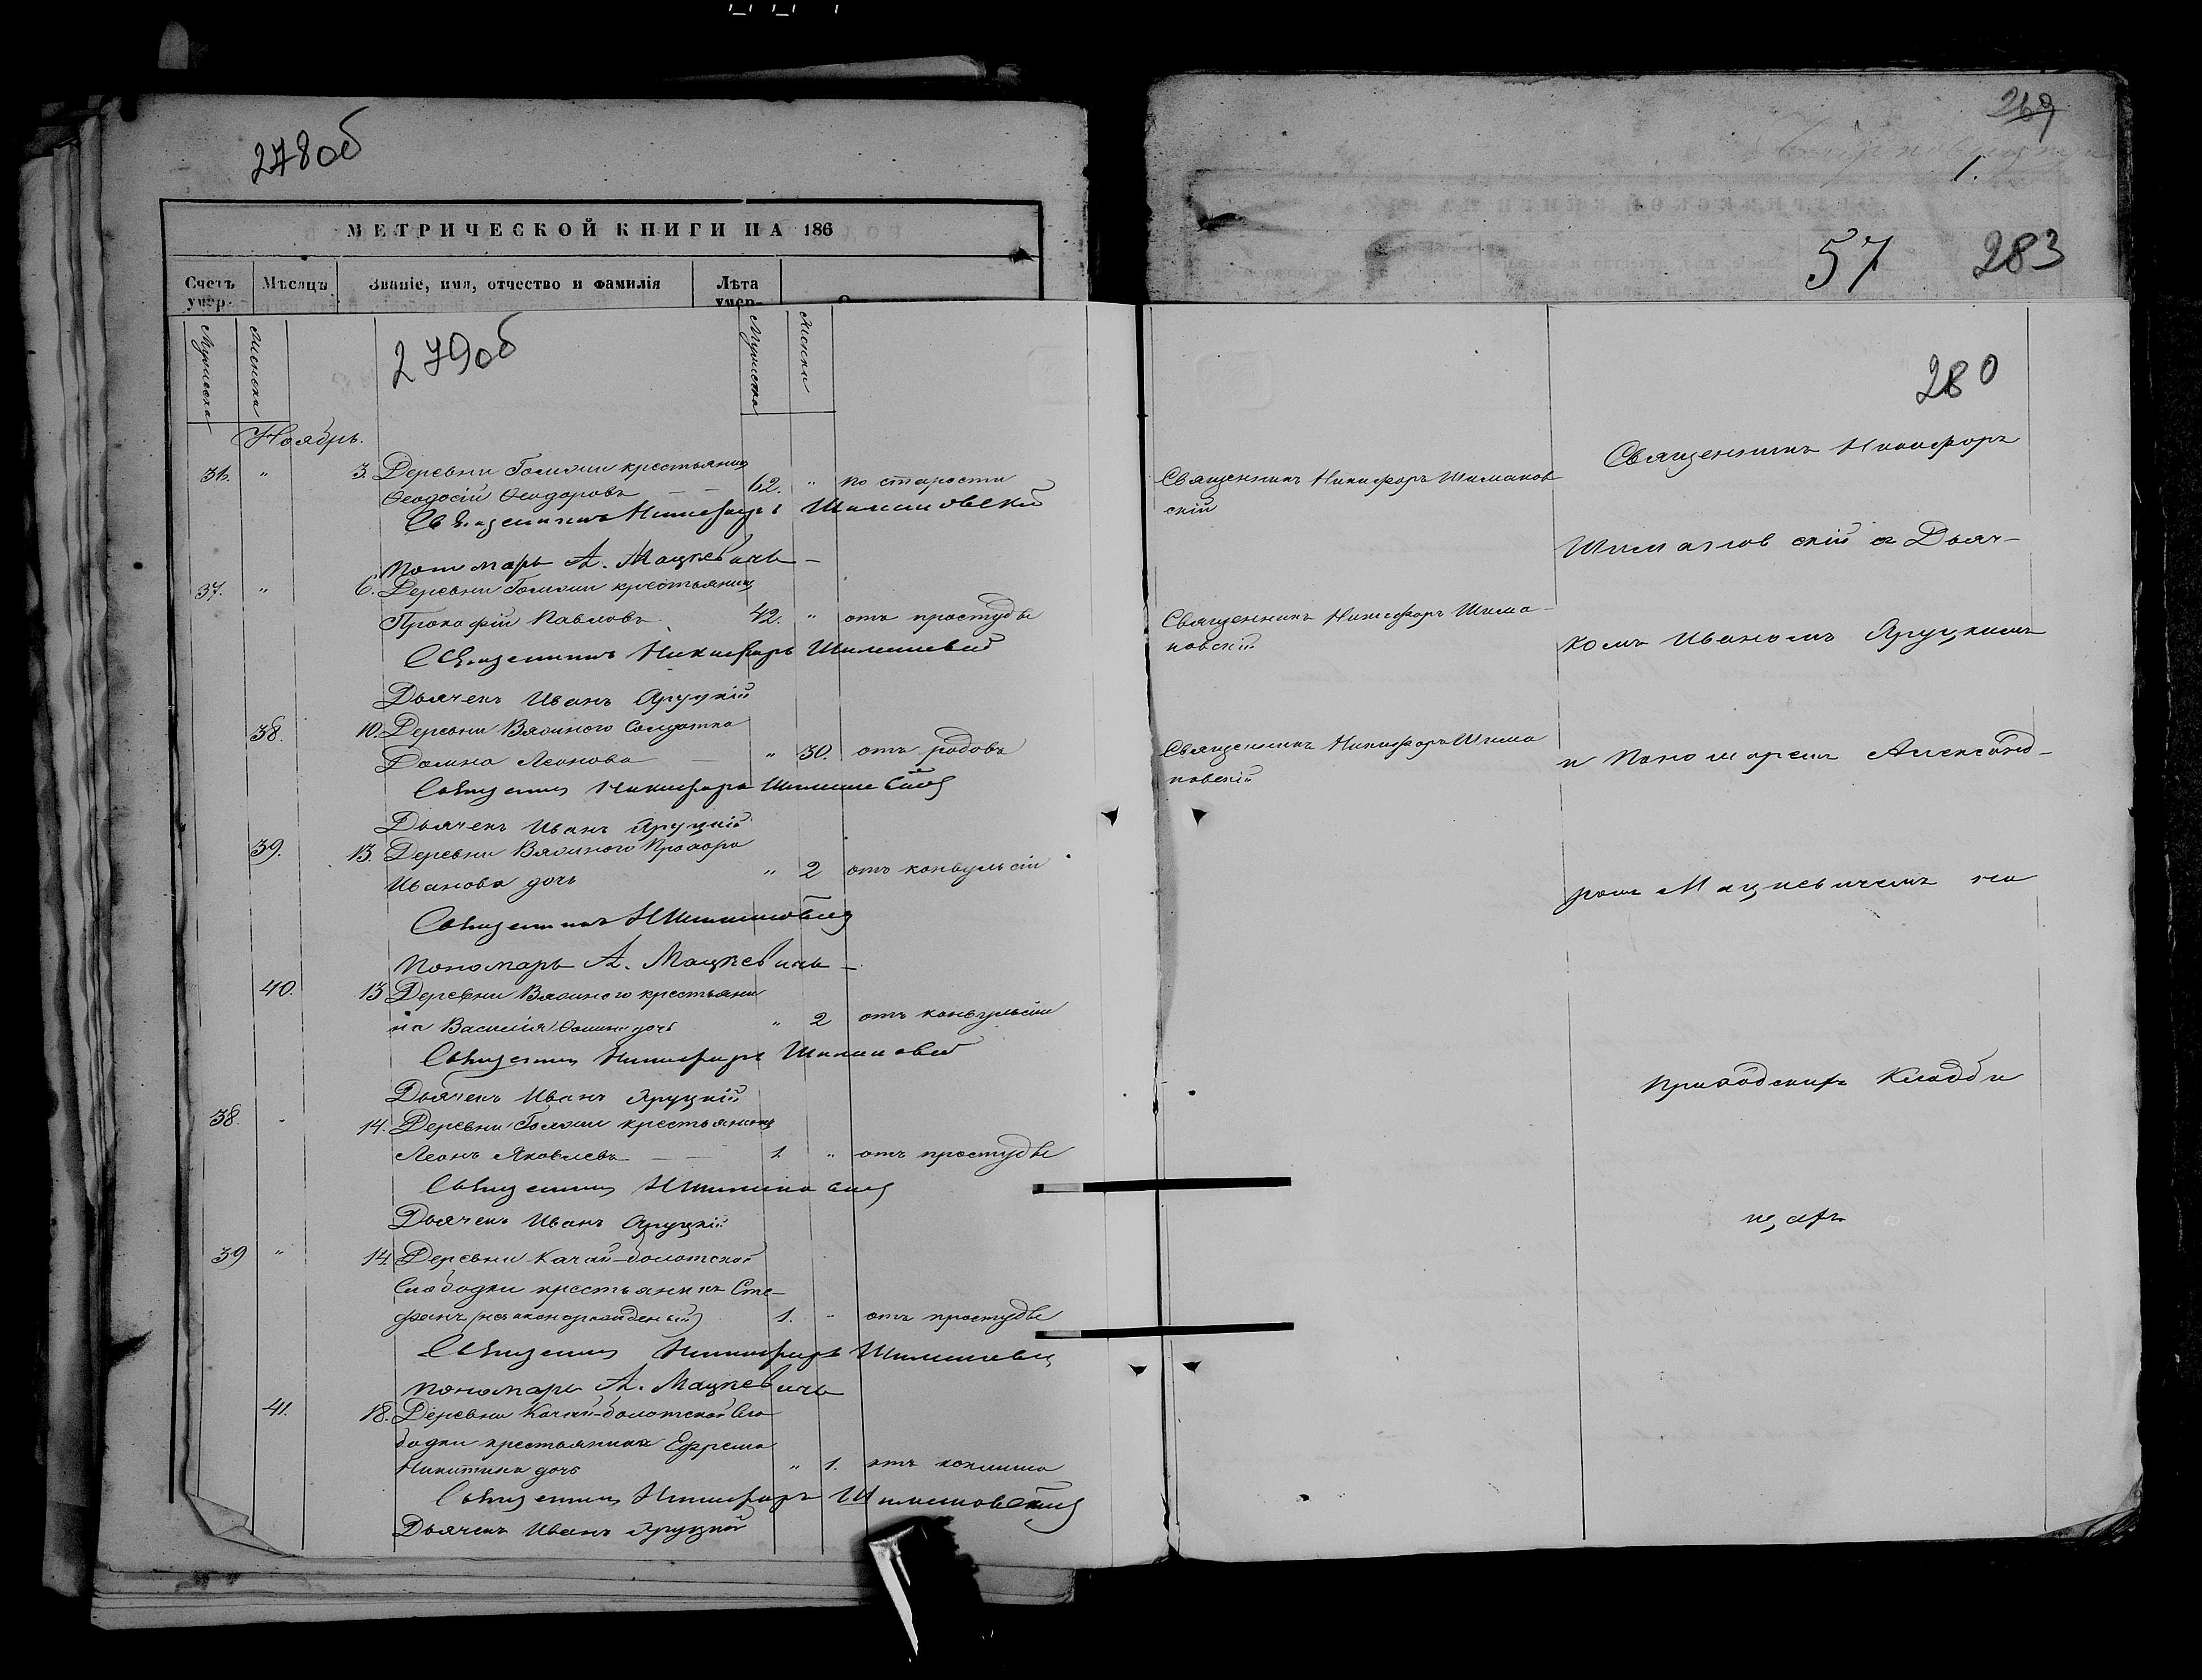 278об
МЕТРИЧЕСКОЙ КНИГИ НА 186
Счетъ умер- Мѣсяцъ Званіе, имя, отчество и фамилія Лѣта умер-
279об
Мужеска Женска Мужеска Женска
Ноябрь.
36. " 3. Деревни крестьянинъ
Ѳеодосій Ѳеодоровъ — — 62. " по старости
Священникъ Никифоръ Шимановскій
Пономарь А. Мацкевичъ —
37. " 6. Деревни крестьянинъ
Прокофій Павловъ 42. " отъ простуды
Священникъ Никифоръ Шимановскій
Дьячекъ Иванъ Яруцкій
38. 10. Деревни Вязичного Солдатка
Домна Леонова — " 30. отъ родовъ
Священникъ Никифоръ Шимановскій
Дьячекъ Иванъ Яруцкій
39. 13. Деревни Прохора
Иванова дочь " 2 отъ конвульсіи
Священникъ Н Шимановскій
Пономарь А. Мацкевичъ —
40. 13 Деревни крестьяни
на Василія дочь " 2 отъ конвульсіи
Священникъ Никифоръ Шимановскій
Дьячекъ Иванъ Яруцкій
38. " 14. Деревни крестьянинъ
Леонъ Яковлевъ — — 1. " отъ простуды
Священникъ Н Шимановскій
Дьячекъ Иванъ Яруцкій
39 " 14. Деревни Качай-болотской
Слободки крестьянинъ Сте-
фанъ (незаконорожденый) 1. " отъ простуды
Священникъ Никифоръ Шимановскій
Пономарь А. Мацкевичъ
41. 18. Деревни Качай-болотской Сло
бодки крестьянина Ефрема
Никитина дочь " 1. отъ коклюша
Священникъ Никифоръ Шимановскій
Дьячекъ Иванъ Яруцкій
269
1.
57 283
280
Священникъ Никифоръ Шиманов
скій
Священникъ Никифоръ Шима-
новскій
Священникъ Никифоръ Шима
новскій
Священникъ Никифоръ
Шимановскій съ Дьяч-
комъ Иваномъ Яруцкимъ
и Пономаремъ Александ-
ромъ Мацкевичемъ на
приходскихъ кладби
щахъ